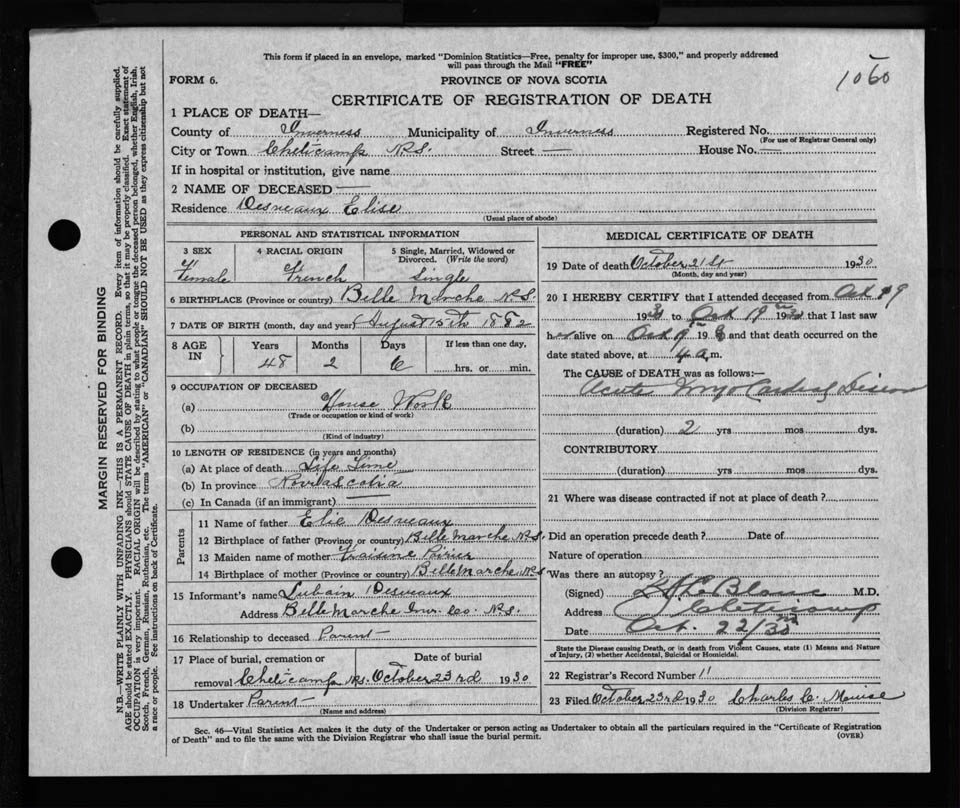 This form if placed in an envelope, marked "Dominion Statistics—Free, penalty for improper use, $300," and properly addressed
will pass through the Mail "FREE"
1060
FORM 6.
PROVINCE OF NOVA SCOTIA
CERTIFICATE OF REGISTRATION OF DEATH
1 PLACE OF DEATH—
County of Inverness Municipality of Inverness Registered No.
(For use of Registrar General only)
City or Town Cheticamp N.S. Street — House No. —
If in hospital or institution, give name
2 NAME OF DECEASED —
Residence Desveaux Elise
(Usual place of abode)
PERSONAL AND STATISTICAL INFORMATION
3 SEX 4 RACIAL ORIGIN 5 Single, Married, Widowed or
Divorced. (Write the word)
Female French Single
6 BIRTHPLACE (Province or country) Belle Marche N.S.
7 DATE OF BIRTH (month, day and year) August 15th 1882
8 AGE IN Years Months Days If less than one day,
48 2 6 hrs. or min.
9 OCCUPATION OF DECEASED
(a) House Work
(Trade or occupation or kind of work)
(b)
(Kind of industry)
10 LENGTH OF RESIDENCE (in years and months)
(a) At place of death Life Time
(b) In province Nova Scotia
(c) In Canada (if an immigrant) —
Parents
11 Name of father Elie Desveaux
12 Birthplace of father (Province or country) Belle Marche N.S.
13 Maiden name of mother Poirier
14 Birthplace of mother (Province or country) Belle Marche N.S.
15 Informant's name Lubain Desveaux
Address Belle Marche Inv. Co. N.S.
16 Relationship to deceased Parent
17 Place of burial, cremation or Date of burial
removal Cheticamp N.S. October 23rd 1930
18 Undertaker Parent
(Name and address)
MEDICAL CERTIFICATE OF DEATH
19 Date of death October 21st 1930
(Month, day and year)
20 I HEREBY CERTIFY that I attended deceased from Oct 9
19 to Oct 19th 19 that I last saw
h alive on Oct 19 and that death occurred on
date stated above, at 4 a.m.
The CAUSE of DEATH was as follows:—
Acute Myo Cardial Disease
(duration) 2 yrs mos dys.
CONTRIBUTORY
(duration) yrs mos dys.
21 Where was disease contracted if not at place of death?
Did an operation precede death? Date of
Nature of operation
Was there an autopsy?
(Signed) M.D.
Address Cheticamp
Date Oct. 22/30
State the Disease causing Death, or in death from Violent Causes, state (1) Means and Nature
of Injury, (2) whether Accidental, Suicidal or Homicidal.
22 Registrar's Record Number 11
23 Filed October 23rd 1930 Charles C.
(Division Registrar)
Sec. 46—Vital Statistics Act makes it the duty of the Undertaker or person acting as Undertaker to obtain all the particulars required in the "Certificate of Registration
of Death" and to file the same with the Division Registrar who shall issue the burial permit. (OVER)
MARGIN RESERVED FOR BINDING
N.B.—WRITE PLAINLY WITH UNFADING INK—THIS IS A PERMANENT RECORD. Every item of information should be carefully supplied.
AGE should be stated EXACTLY. PHYSICIANS should STATE CAUSE OF DEATH in plain terms, so that it may be properly classified. Exact statement of
OCCUPATION is very important. RACIAL ORIGIN will be described by stating to what people or tongue the deceased person belonged, whether English, Irish,
Scotch, French, German, Russian, Ruthenian, etc. The terms "AMERICAN" or "CANADIAN" SHOULD NOT BE USED as they express citizenship but not
a race or people. See instructions on back of Certificate.